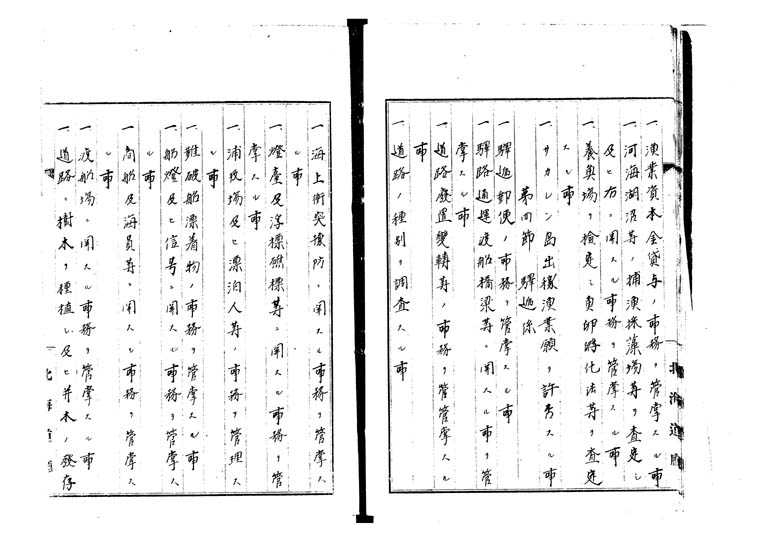 一漁業資本金貸与ノ事務ヲ管掌スル事
一河海湖沼等ノ捕漁採藻場等ヲ査定シ
及ヒ右ニ関スル事務ヲ管掌スル事
一養魚場ヲ検定シ魚卵孵化法等ヲ査定
スル事
一サカレン島出稼漁業願ヲ許否スル事
第四節 驛逓係
一驛逓郵便ノ事務ヲ管掌スル事
一驛路通運渡船橋梁等ニ関スル事ヲ管
掌スル事
一道路廃置変轉等ノ事務ヲ管掌スル
事
一道路ノ種別ヲ調査スル事
北海道廳
一海上衝突豫防ニ関スル事務ヲ管掌ス
ル事
一燈臺及浮標礁標等ニ関スル事務ヲ管
掌スル事
一浦役場及ヒ漂泊人等ノ事務ヲ管理ス
ル事
一難破船漂着物ノ事務ヲ管掌スル事
一船燈及ヒ信号ニ関スル事務ヲ管掌ス
ル事
一商船及海員等ニ関スル事務ヲ管掌ス
ル事
一渡船場ニ関スル事務ヲ管掌スル事
一道路ニ樹木ヲ種植シ及ヒ並木ノ發存